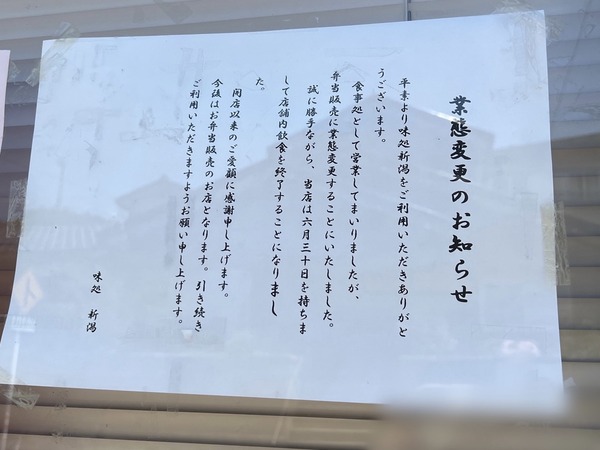 業態変更のお知らせ
平素より味処新潟をご利用いただきありがと
うございます。
食事処として営業してまいりましたが、
弁当販売に業態変更することにいたしました。
誠に勝手ながら、当店は六月三十日を持ちま
して店舗内飲食を終了することになりまし
た。
開店以来のご愛顧に感謝申し上げます。
今後はお弁当販売のお店となります。引き続き
ご利用いただきますようお願い申し上げます。
味処 新潟